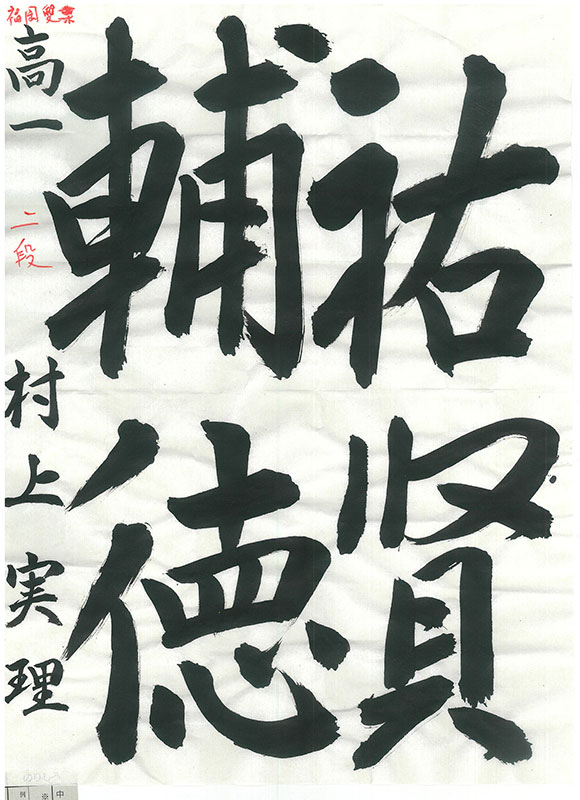 祐賢
輔徳
高一 二段 村上実理
福岡雙葉